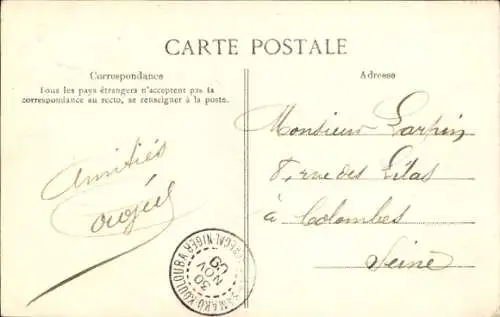 CARTE POSTALE
Correspondance
Tous les pays étrangers n'acceptent pas la
correspondance au recto, se renseigner à la poste.
Adresse
Amitiés
Monsieur Larpin
8, rue des Lilas
à Colombes
Seine
BAMAKO-KOULOUBA
SÉNÉGAL NIGER
30
NOV
09